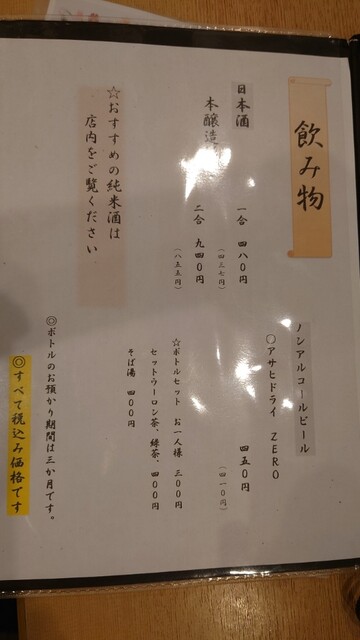 飲み物
日本酒
本醸造
一合 四八〇円
(四三七円)
二合 九四〇円
(八五五円)
☆おすすめの純米酒は
店内をご覧ください
ノンアルコールビール
〇アサヒドライ ZERO
四五〇円
(四一〇円)
☆ボトルセット お一人様 三〇〇円
セットウーロン茶、緑茶、四〇〇円
そば湯 四〇〇円
◎ボトルのお預かり期間は三か月です。
◎すべて税込み価格です